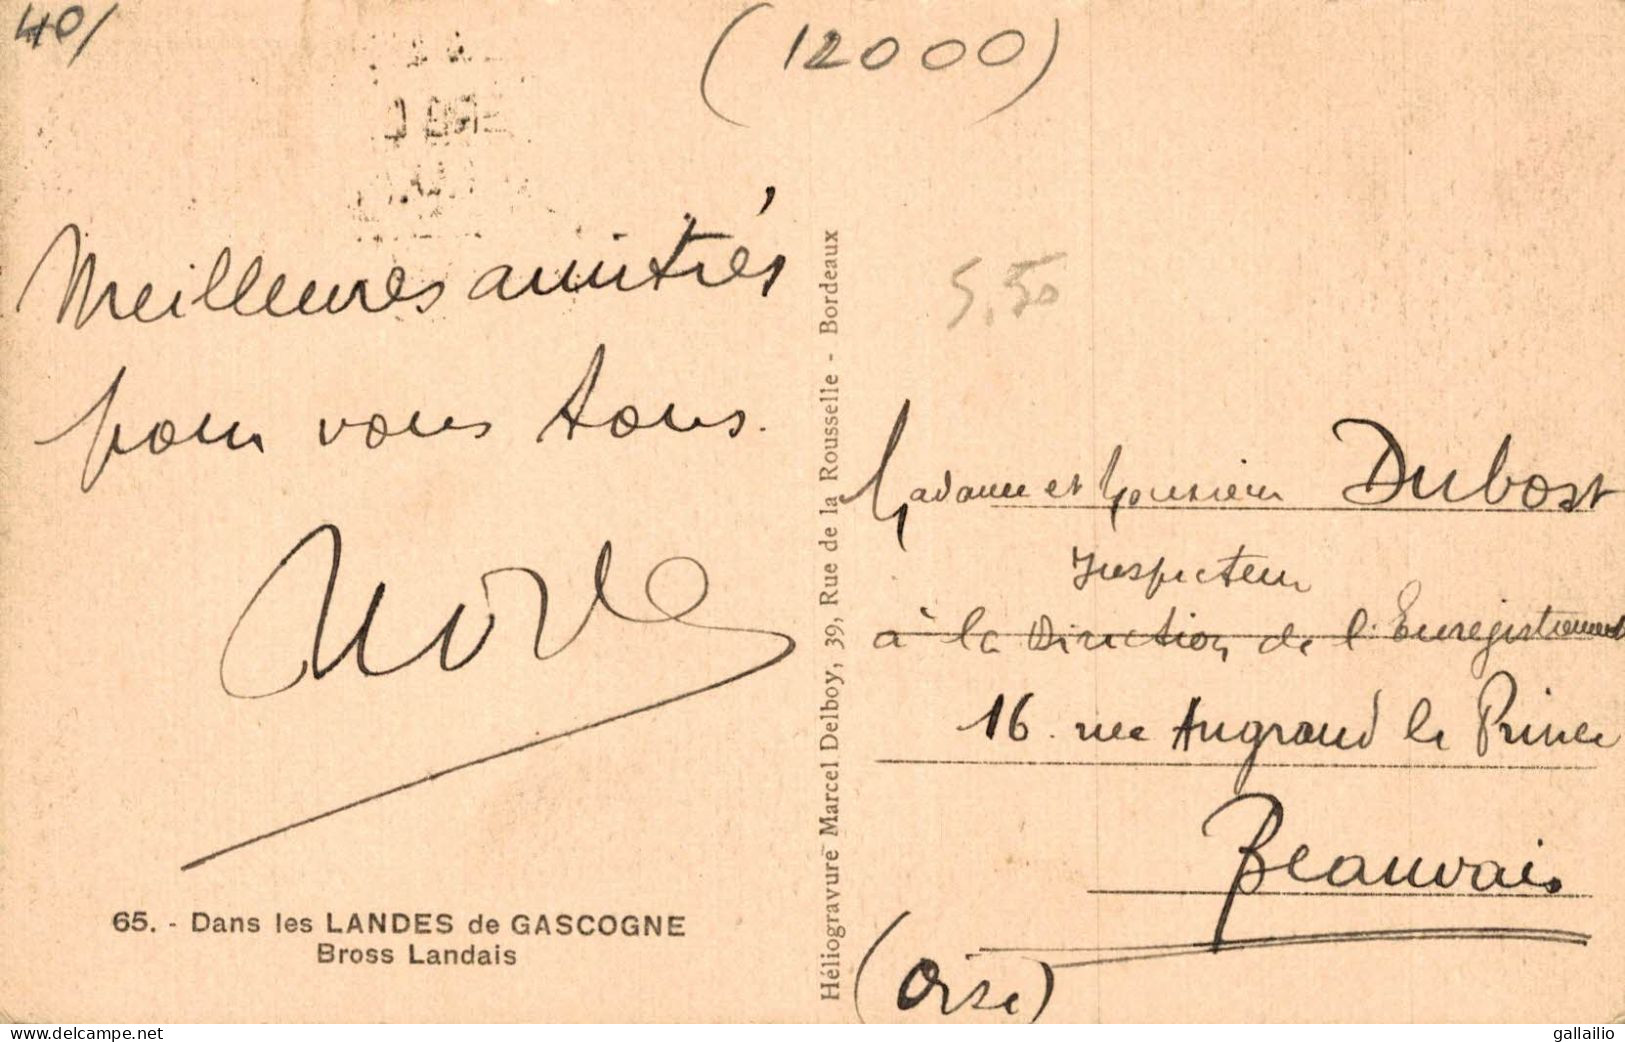 40/
(12000)
Meilleures amitiés
pour vous tous.
65. - Dans les LANDES de GASCOGNE
Bross Landais
Héliogravure Marcel Delboy, 39, Rue de la Rousselle - Bordeaux
5,50
Madame et Monsieur Dubost
Inspecteur
à la Direction de l'Enregistrement
16. rue Angrand le Prince
Beauvais
(Oise)
www.delcampe.net
gallailio